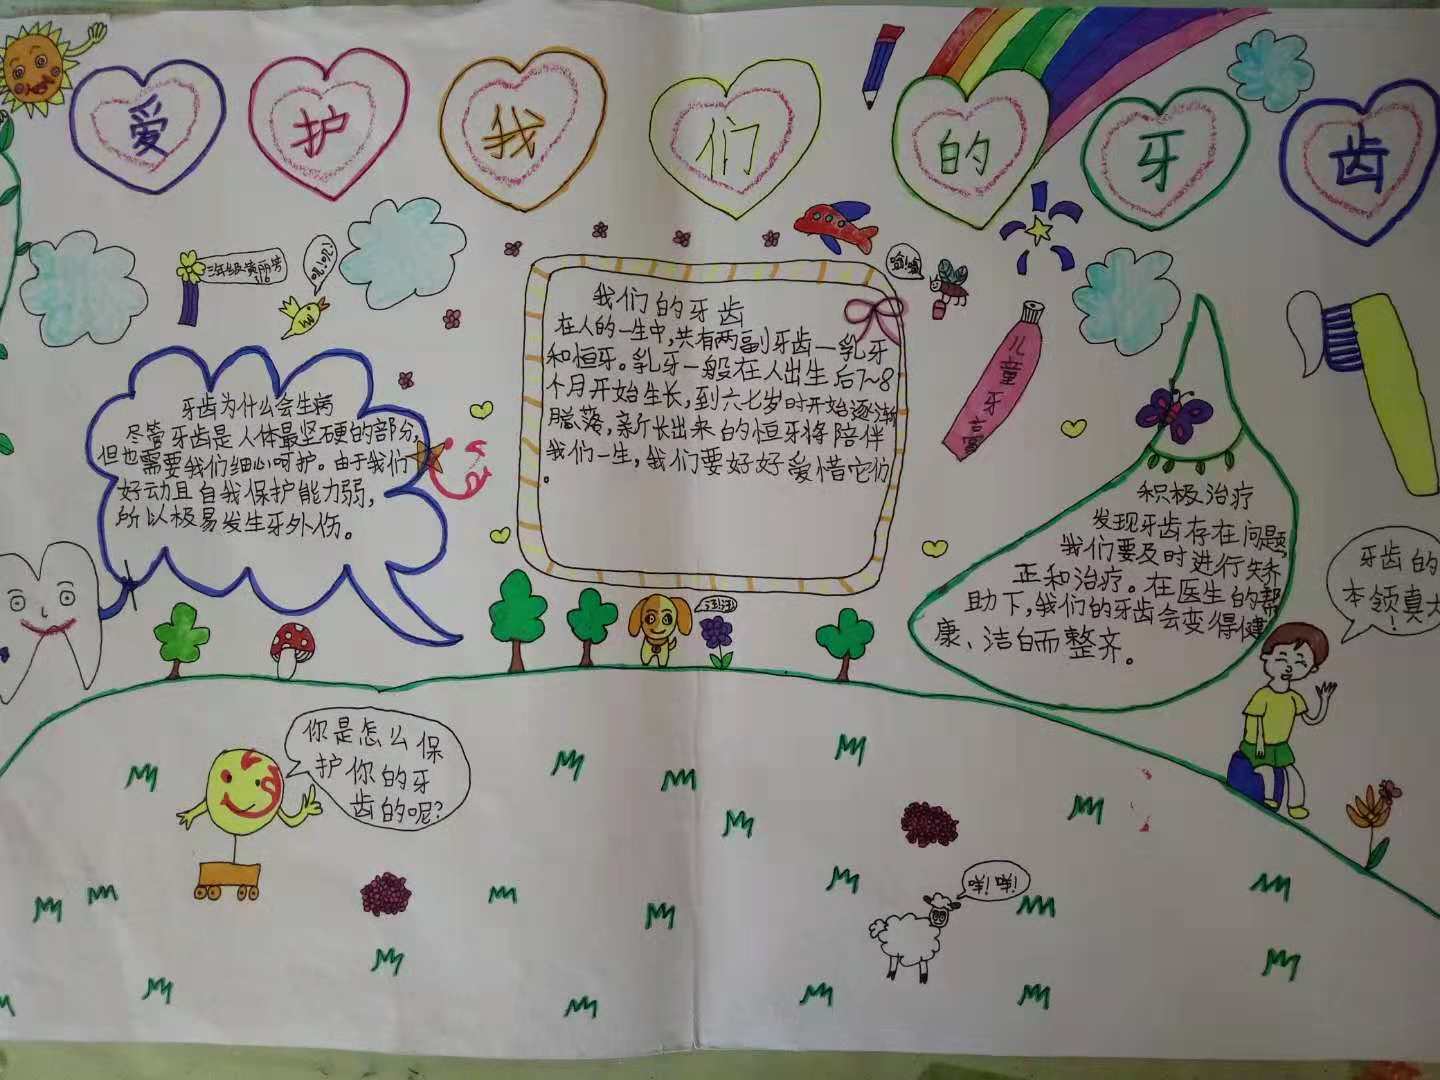 爱护我们的牙齿
三年级
叽!叽!
嗡!嗡
我们的牙齿
在人的一生中,共有两副牙齿—乳牙
和恒牙。乳牙一般在人出生后7~8
个月开始生长,到六七岁时开始逐渐
脱落,新长出来的恒牙将陪伴
我们一生,我们要好好爱惜它们
。
儿童牙膏
牙齿为什么会生病
尽管牙齿是人体最坚硬的部分,
但也需要我们细心呵护。由于我们
好动且自我保护能力弱,
所以极易发生牙外伤。
积极治疗
发现牙齿存在问题,
我们要及时进行矫
正和治疗。在医生的帮
助下,我们的牙齿会变得健
康、洁白而整齐。
牙齿的
本领真大
!
汪!汪!
你是怎么保
护你的牙
齿的呢?
咩!咩!